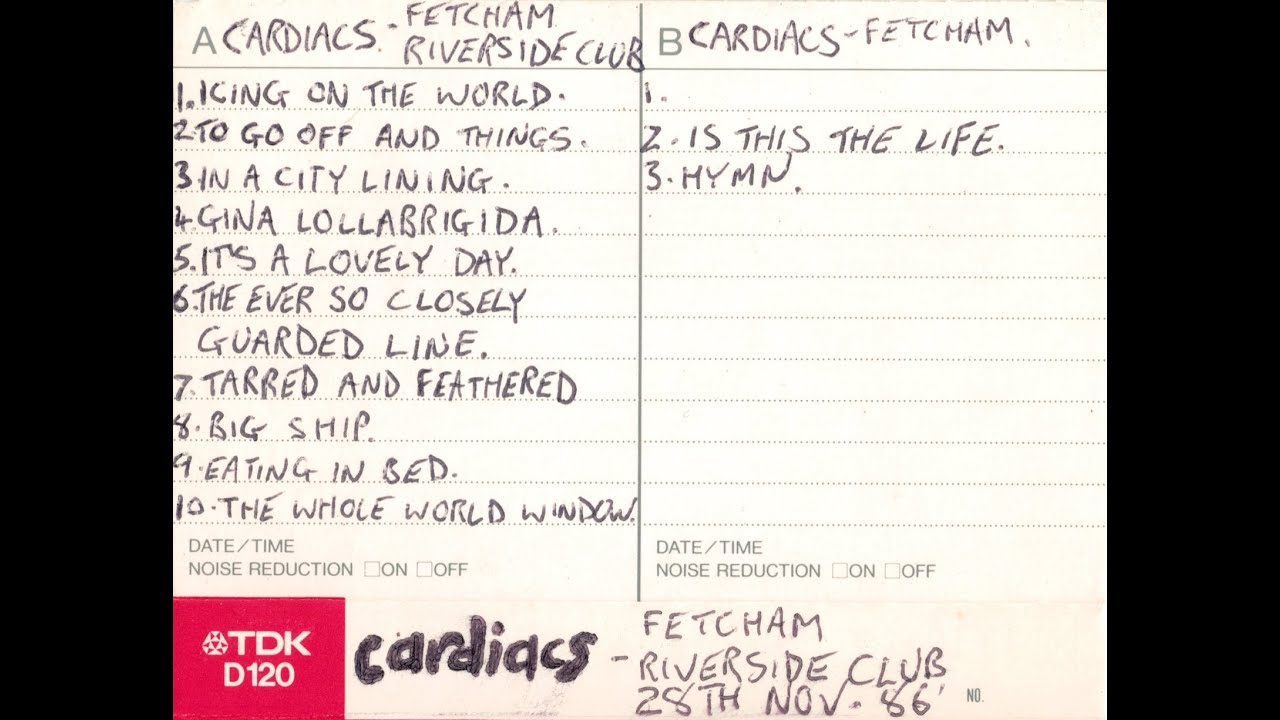 A CARDIACS - FETCHAM
RIVERSIDE CLUB
1. ICING ON THE WORLD.
2 TO GO OFF AND THINGS.
3 IN A CITY LINING.
4. GINA LOLLABRIGIDA.
5. IT'S A LOVELY DAY.
6. THE EVER SO CLOSELY
GUARDED LINE.
7. TARRED AND FEATHERED
8. BIG SHIP.
9. EATING IN BED.
10. THE WHOLE WORLD WINDOW.
DATE/TIME
NOISE REDUCTION □ON □OFF
B CARDIACS - FETCHAM.
1.
2. IS THIS THE LIFE.
3. HYMN.
DATE/TIME
NOISE REDUCTION □ON □OFF
TDK
D120
cardiacs - FETCHAM
RIVERSIDE CLUB
28TH NOV. 86'
NO.